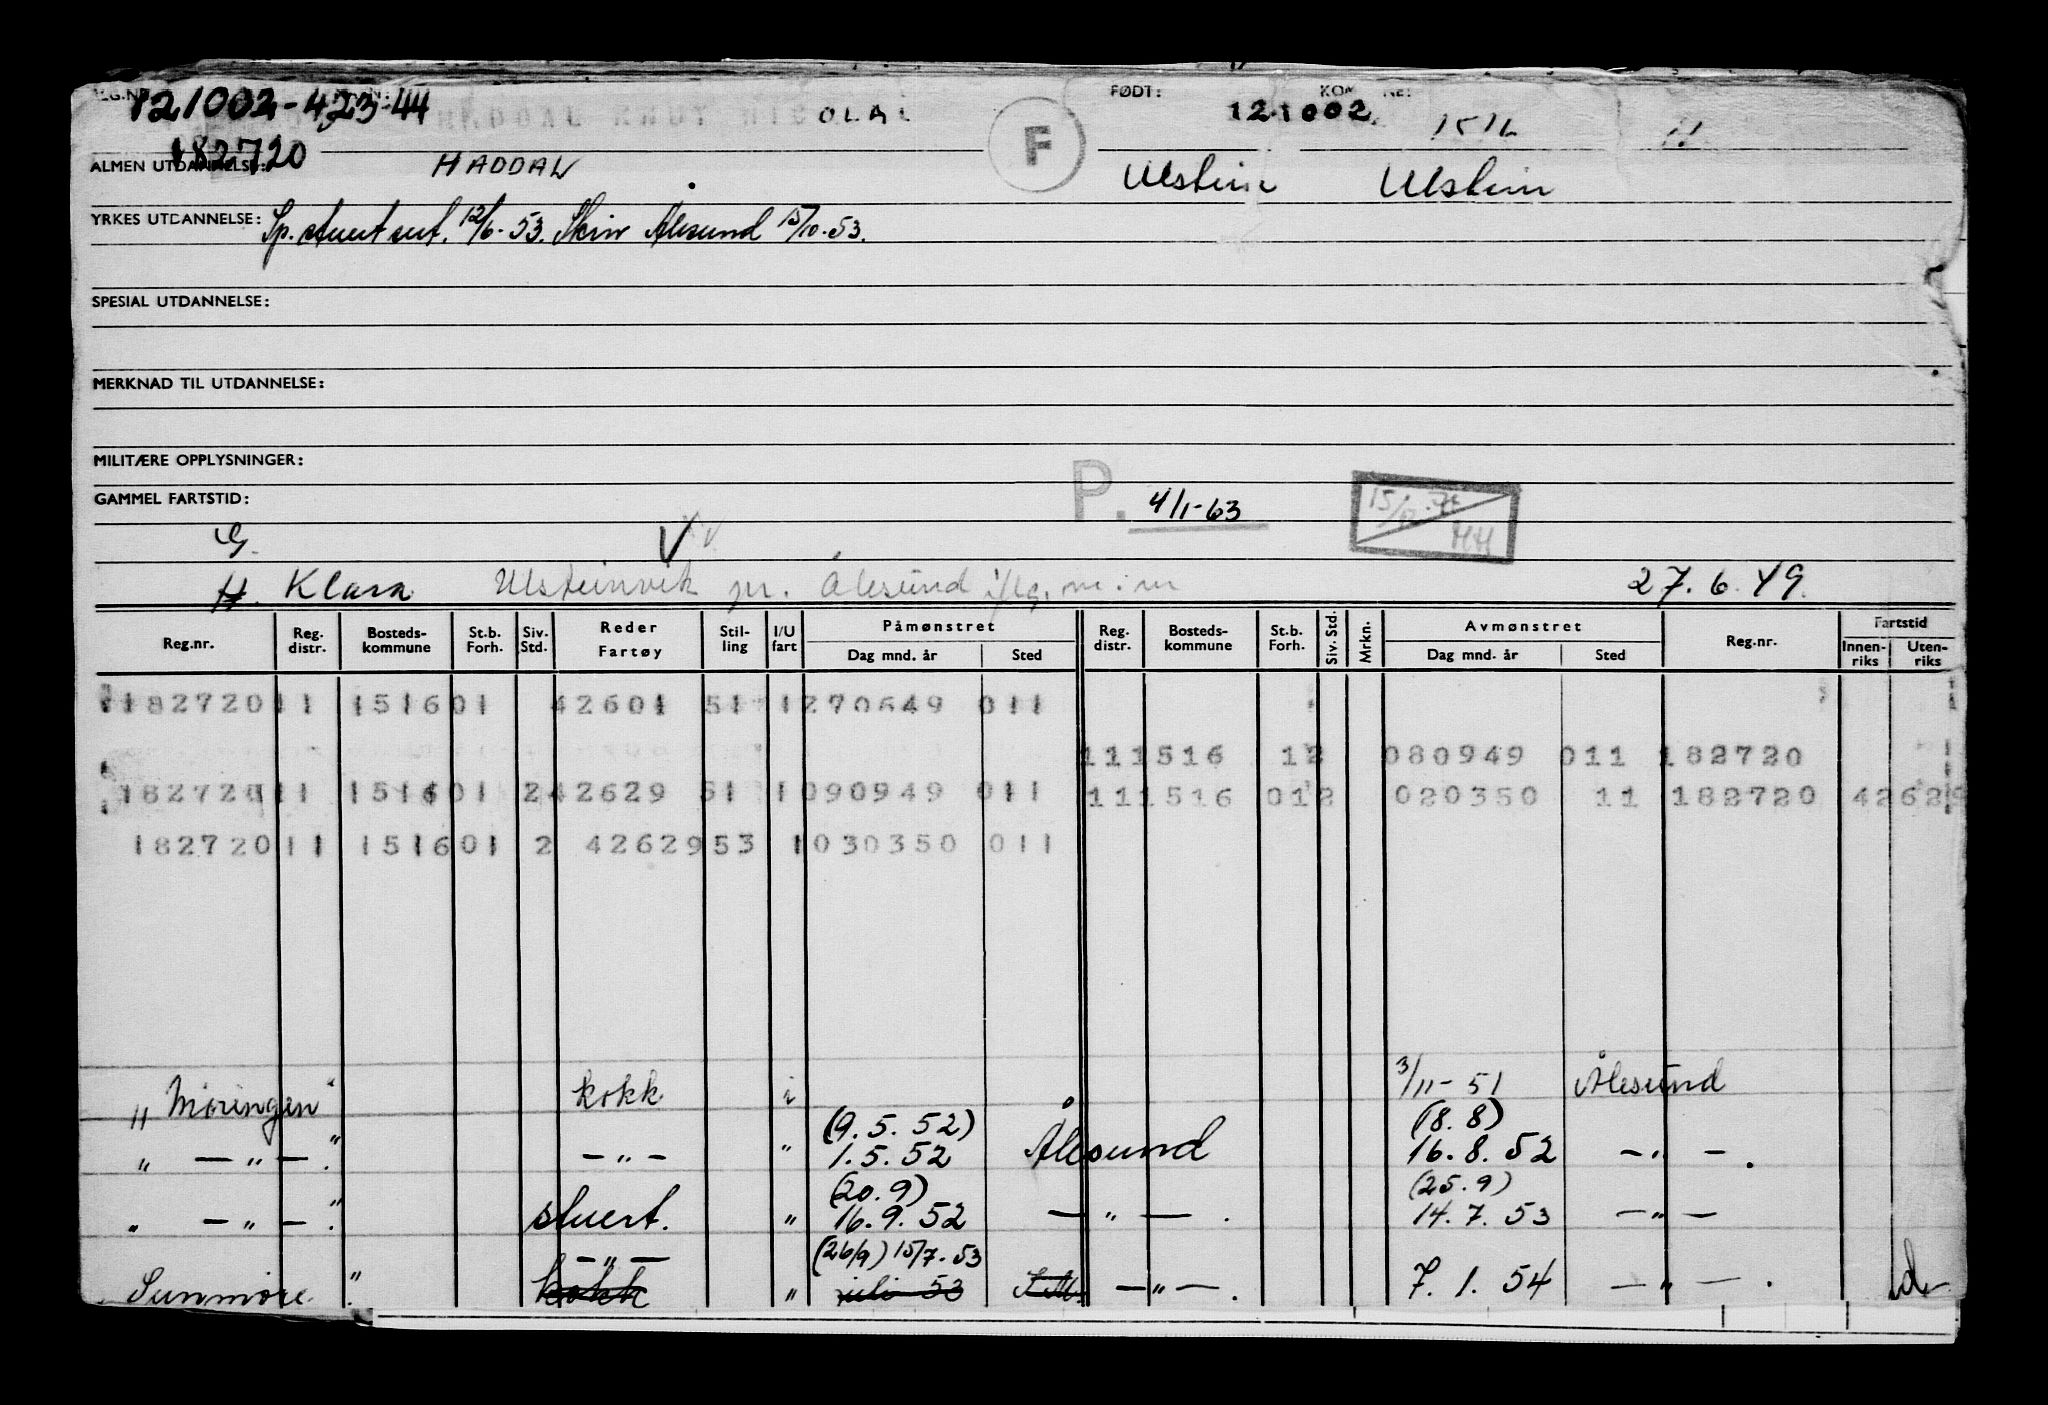 121002-42344 OLA FØDT: 121002. 1516
182720 F
ALMEN UTDANNELSE: HADDAL Ulstein Ulstein
YRKES UTDANNELSE: Sp. stuert sert. 12/6-53. Skriv Ålesund 15/10-53.
SPESIAL UTDANNELSE:
MERKNAD TIL UTDANNELSE:
MILITÆRE OPPLYSNINGER:
GAMMEL FARTSTID: P. 4/1-63 15/ HH
G. V
H. Klara Ulsteinvik pr. Ålesund 27.6.49.
Reg.nr. Reg. distr. Bosteds-kommune St.b. Forh. Siv. Std. Reder Fartøy Stil-ling I/U fart Påmønstret Dag mnd. år Sted Reg. distr. Bosteds-kommune St.b. Forh. Siv. Std. Mrkn. Avmønstret Dag mnd. år Sted Reg.nr. Fartstid Innen-riks Uten-riks
182720 11 1516 01 42601 51 1 270649 011
11 1516 12 080949 011 182720
182720 11 1516 01 2 42629 51 1 090949 011 11 1516 01 2 020350 11 182720 42629
182720 11 1516 01 2 42629 53 1 030350 011
"Møringen" kokk i 3/11-51 Ålesund
(9.5.52) (18.8)
" — " — ." — " — " 1.5.52 Ålesund 16.8.52 — " — .
(20.9) (25.9)
" — " — ." stuert. " 16.9.52 — " — . 14.7.53 — " —
— " — (26/9) 15/7-53
Sunnmøre." kokk " juli 53 — " — . 7.1.54 — " — .